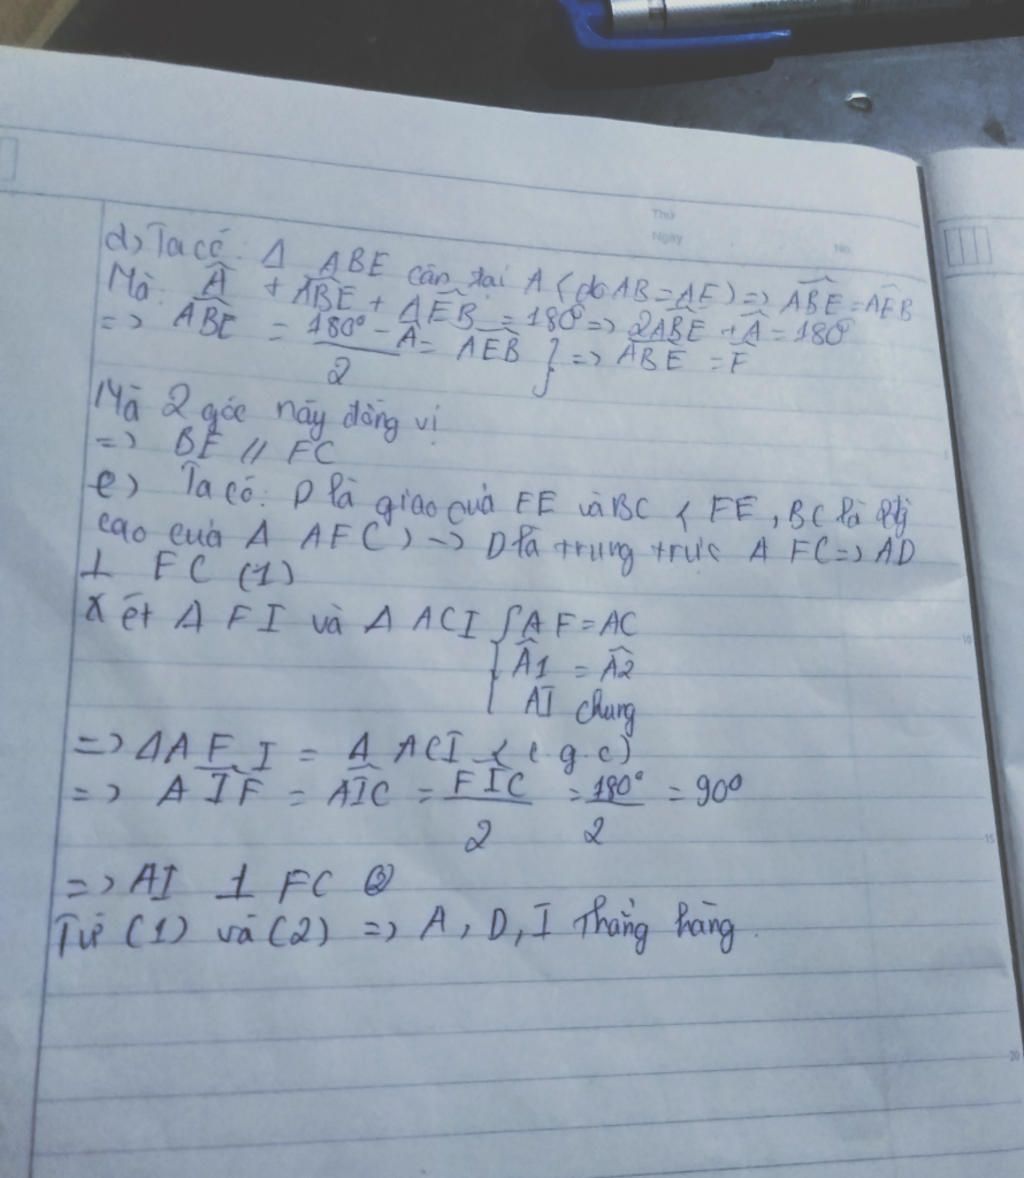 Thứ
Ngày
No
d) Ta có: Δ ABE cân tại A (do AB = AE) => \widehat{ABE} = \widehat{AEB}
Mà: \widehat{A} + \widehat{ABE} + \widehat{AEB} = 180° => 2\widehat{ABE} + \widehat{A} = 180°
=> \widehat{ABE} = \frac{180° - \widehat{A}}{2} = \widehat{AEB} } => \widehat{ABE} = \widehat{F}
Mà 2 góc này đồng vị
=> BE // FC
e) Ta có: D là giao của FE và BC ( FE, BC là
cao của Δ AFC) => D là trung trực Δ FC => AD
⊥ FC (1)
Xét Δ FI và Δ ACI { AF = AC
\widehat{A1} = \widehat{A2}
AI chung
=> ΔAFI = Δ ACI (c g c)
=> \widehat{AIF} = \widehat{AIC} = \frac{\widehat{FIC}}{2} = \frac{180°}{2} = 90°
=> AI ⊥ FC (2)
Từ (1) và (2) => A, D, I Thẳng hàng.
10
15
20